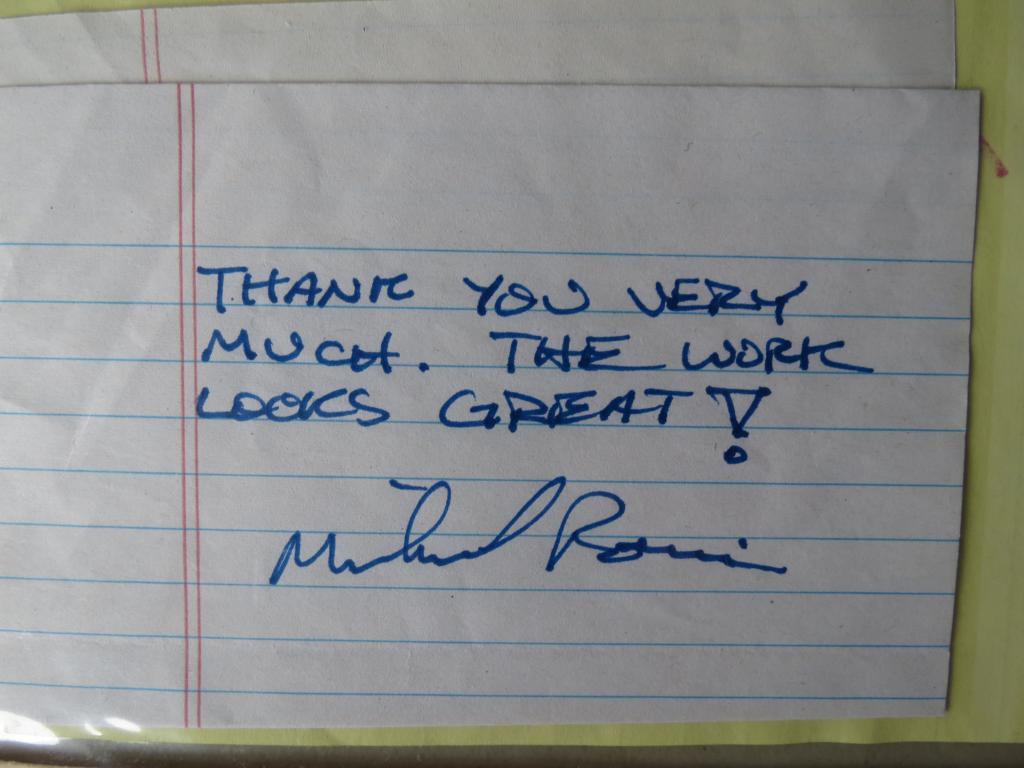 THANK YOU VERY
MUCH. THE WORK
LOOKS GREAT!
Michael